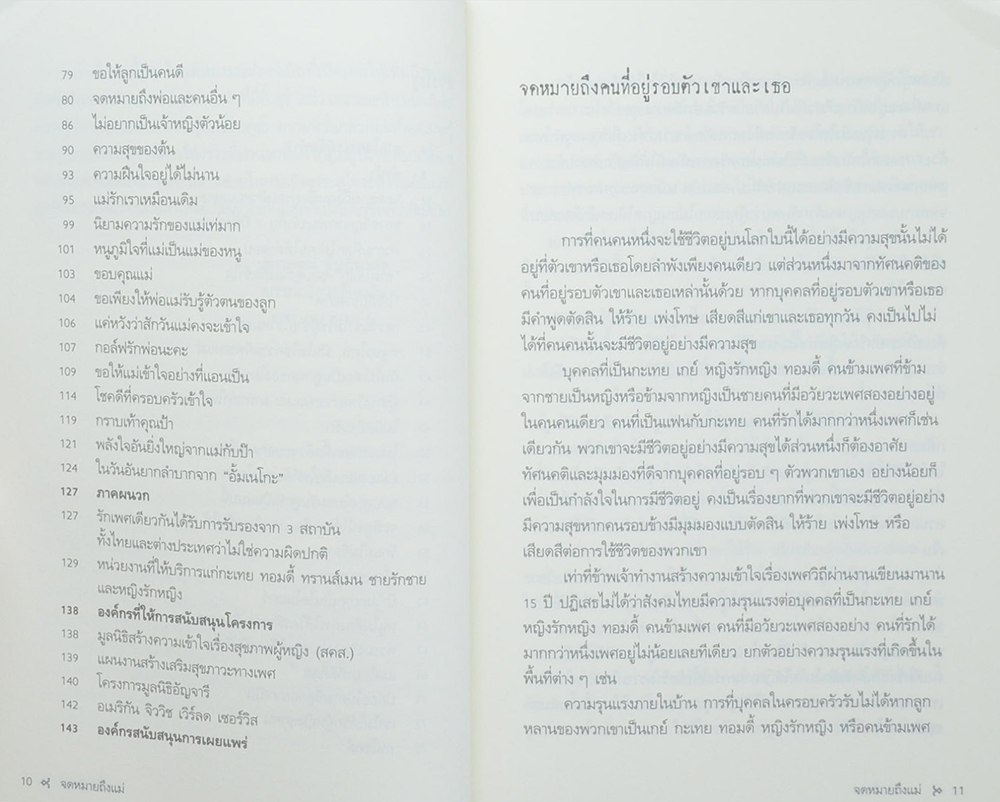 79 ขอให้ลูกเป็นคนดี
80 จดหมายถึงพ่อและคนอื่น ๆ
86 ไม่อยากเป็นเจ้าหญิงตัวน้อย
90 ความสุขของต้น
93 ความฝืนใจอยู่ได้ไม่นาน
95 แม่รักเราเหมือนเดิม
99 นิยามความรักของแม่เท่มาก
101 หนูภูมิใจที่แม่เป็นแม่ของหนู
103 ขอบคุณแม่
104 ขอเพียงให้พ่อแม่รับรู้ตัวตนของลูก
106 แค่หวังว่าสักวันแม่คงจะเข้าใจ
107 กอล์ฟรักพ่อนะคะ
109 ขอให้แม่เข้าใจอย่างที่แอนเป็น
114 โชคดีที่ครอบครัวเข้าใจ
119 กราบเท้าคุณป้า
121 พลังใจอันยิ่งใหญ่จากแม่กับป๊า
124 ในวันอันยากลำบากจาก “อั้มเนโกะ”
127 ภาคผนวก
127 รักเพศเดียวกันได้รับการรับรองจาก 3 สถาบัน
ทั้งไทยและต่างประเทศว่าไม่ใช่ความผิดปกติ
129 หน่วยงานที่ให้บริการแก่กะเทย ทอมดี้ ทรานส์เมน ชายรักชาย
และหญิงรักหญิง
138 องค์กรที่ให้การสนับสนุนโครงการ
138 มูลนิธิสร้างความเข้าใจเรื่องสุขภาพผู้หญิง (สคส.)
139 แผนงานสร้างเสริมสุขภาวะทางเพศ
140 โครงการมูลนิธิอัญจารี
142 อเมริกัน จิววิช เวิร์ลด เซอร์วิส
143 องค์กรสนับสนุนการเผยแพร่
10 จดหมายถึงแม่
จดหมายถึงคนที่อยู่รอบตัวเขาและเธอ
การที่คนคนหนึ่งจะใช้ชีวิตอยู่บนโลกใบนี้ได้อย่างมีความสุขนั้นไม่ได้
อยู่ที่ตัวเขาหรือเธอโดยลำพังเพียงคนเดียว แต่ส่วนหนึ่งมาจากทัศนคติของ
คนที่อยู่รอบตัวเขาและเธอเหล่านั้นด้วย หากบุคคลที่อยู่รอบตัวเขาหรือเธอ
มีคำพูดตัดสิน ให้ร้าย เพ่งโทษ เสียดสีแก่เขาและเธอทุกวัน คงเป็นไปไม่
ได้ที่คนคนนั้นจะมีชีวิตอยู่อย่างมีความสุข
บุคคลที่เป็นกะเทย เกย์ หญิงรักหญิง ทอมดี้ คนข้ามเพศที่ข้าม
จากชายเป็นหญิงหรือข้ามจากหญิงเป็นชายคนที่มีอวัยวะเพศสองอย่างอยู่
ในคนคนเดียว คนที่เป็นแฟนกับกะเทย คนที่รักได้มากกว่าหนึ่งเพศก็เช่น
เดียวกัน พวกเขาจะมีชีวิตอยู่อย่างมีความสุขได้ส่วนหนึ่งก็ต้องอาศัย
ทัศนคติและมุมมองที่ดีจากบุคคลที่อยู่รอบ ๆ ตัวพวกเขาเอง อย่างน้อยก็
เพื่อเป็นกำลังใจในการมีชีวิตอยู่ คงเป็นเรื่องยากที่พวกเขาจะมีชีวิตอยู่อย่าง
มีความสุขหากคนรอบข้างมีมุมมองแบบตัดสิน ให้ร้าย เพ่งโทษ หรือ
เสียดสีต่อการใช้ชีวิตของพวกเขา
เท่าที่ข้าพเจ้าทำงานสร้างความเข้าใจเรื่องเพศวิถีผ่านงานเขียนมานาน
15 ปี ปฏิเสธไม่ได้ว่าสังคมไทยมีความรุนแรงต่อบุคคลที่เป็นกะเทย เกย์
หญิงรักหญิง ทอมดี้ คนข้ามเพศ คนที่มีอวัยวะเพศสองอย่าง คนที่รักได้
มากกว่าหนึ่งเพศอยู่ไม่น้อยเลยทีเดียว ยกตัวอย่างความรุนแรงที่เกิดขึ้นใน
พื้นที่ต่าง ๆ เช่น
ความรุนแรงภายในบ้าน การที่บุคคลในครอบครัวรับไม่ได้หากลูก
หลานของพวกเขาเป็นเกย์ กะเทย ทอมดี้ หญิงรักหญิง หรือคนข้ามเพศ
จดหมายถึงแม่ 11